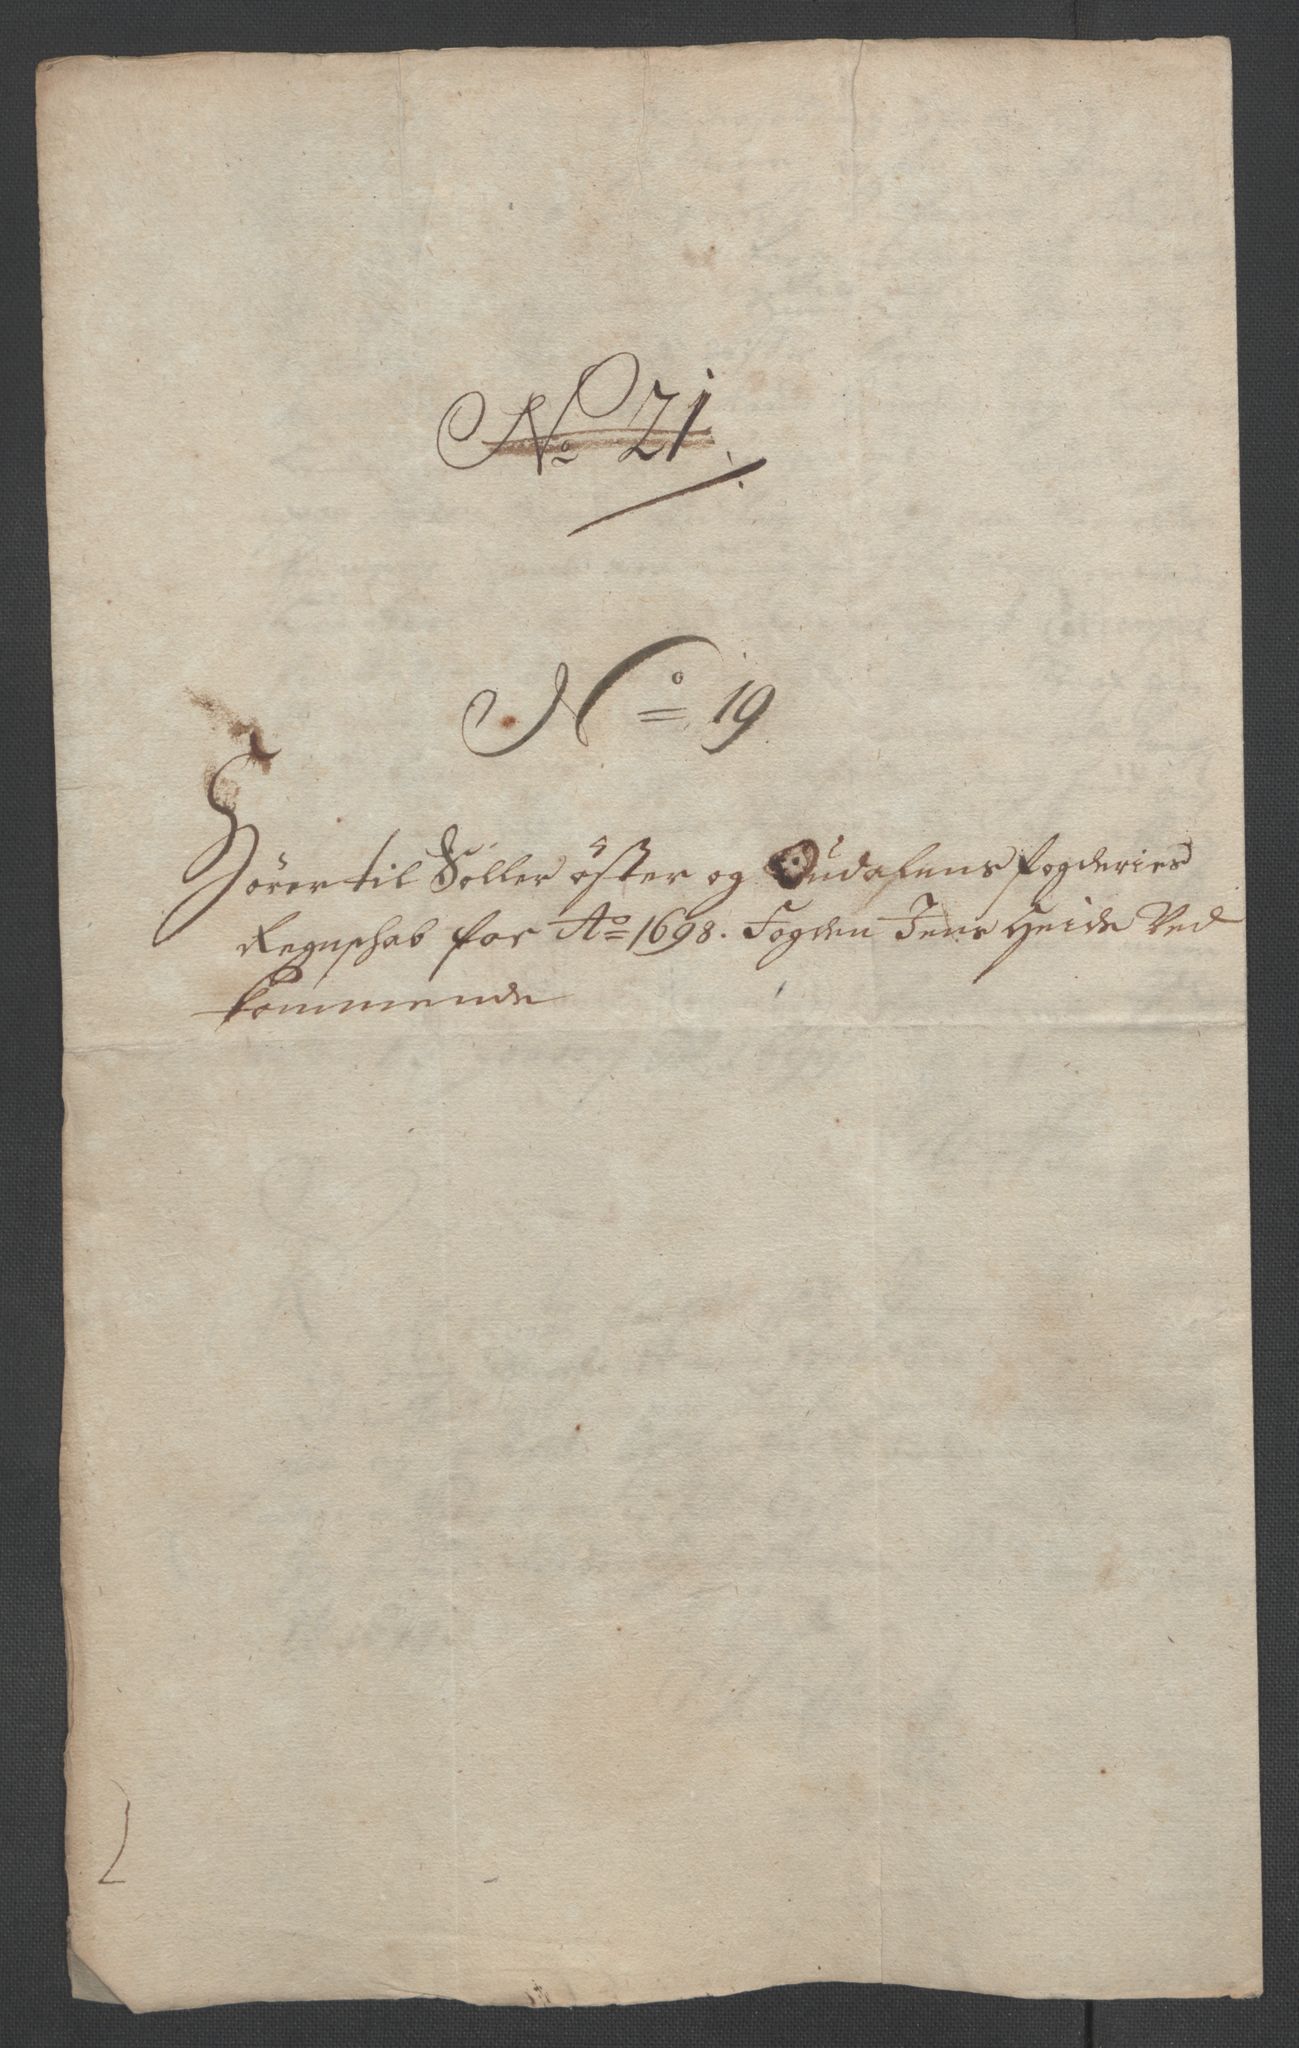 No 21.
No 19
Hörer til Soller öster og Oudalens fogderies
Regnschab for Ao 1698. Fogden Jens Heide Ved
kommende